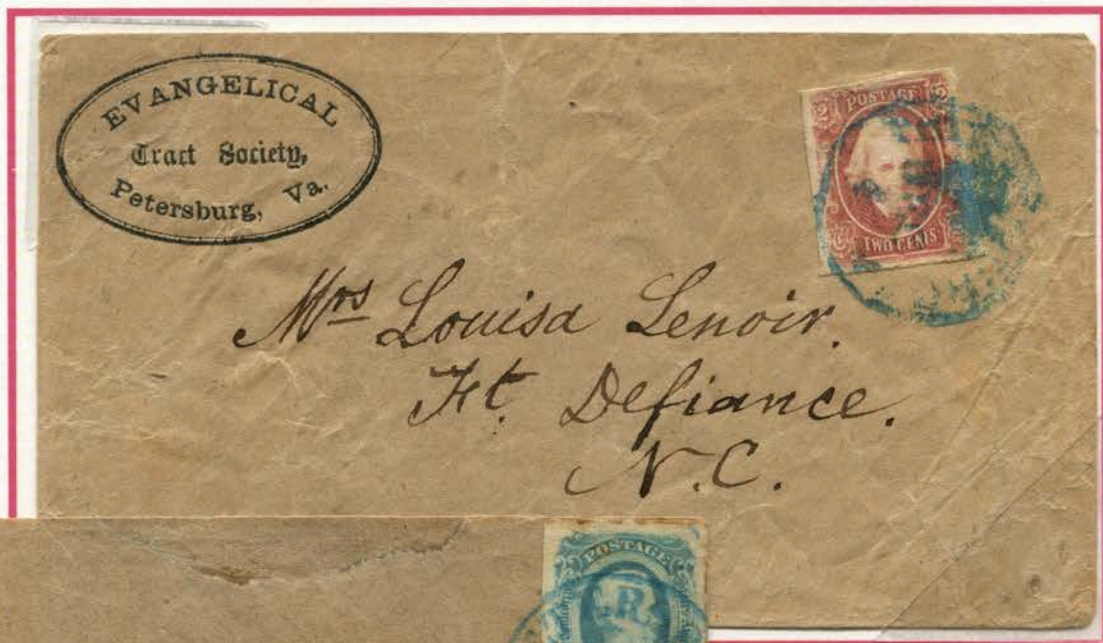 EVANGELICAL
Tract Society,
Petersburg, Va.
2 POSTAGE 2
TWO CENTS
Mrs Louisa Lenoir.
Ft. Defiance.
N.C.
POSTAGE